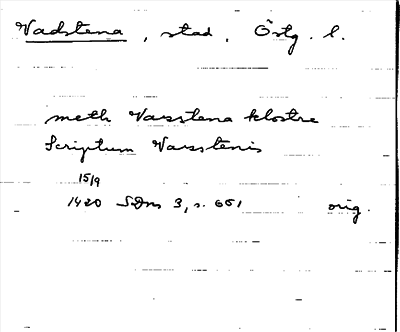 Vadstena, stad, Östg. l.
meth Varzstena klostre
Scriptum Varzstenis
15/9
1420 SDns 3, s. 661 orig.